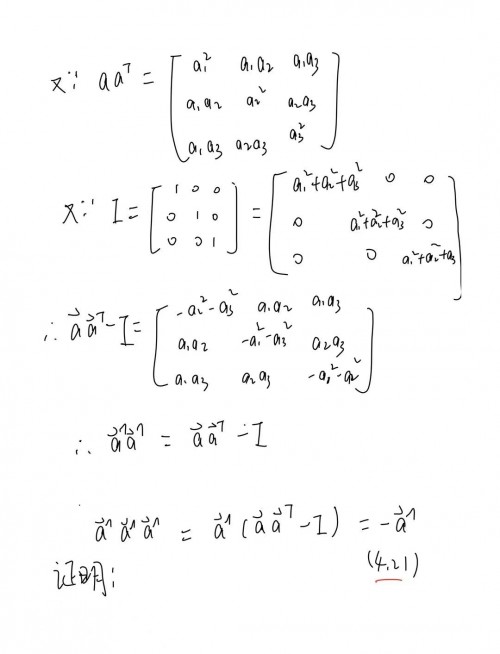 又∵ aaᵀ = [a₁² a₁a₂ a₁a₃
a₁a₂ a₂² a₂a₃
a₁a₃ a₂a₃ a₃²]
又∵ I = [1 0 0; 0 1 0; 0 0 1] = [a₁²+a₂²+a₃² 0 0
0 a₁²+a₂²+a₃² 0
0 0 a₁²+a₂²+a₃]
∴ a⃗a⃗ᵀ-I = [-a₂²-a₃² a₁a₂ a₁a₃
a₁a₂ -a₁²-a₃² a₂a₃
a₁a₃ a₂a₃ -a₁²-a₂²]
∴ a⃗^a⃗^ = a⃗a⃗ᵀ-I
a⃗^a⃗^a⃗^ = a⃗^(a⃗a⃗ᵀ-I) = -a⃗^
(4.21)
证明: